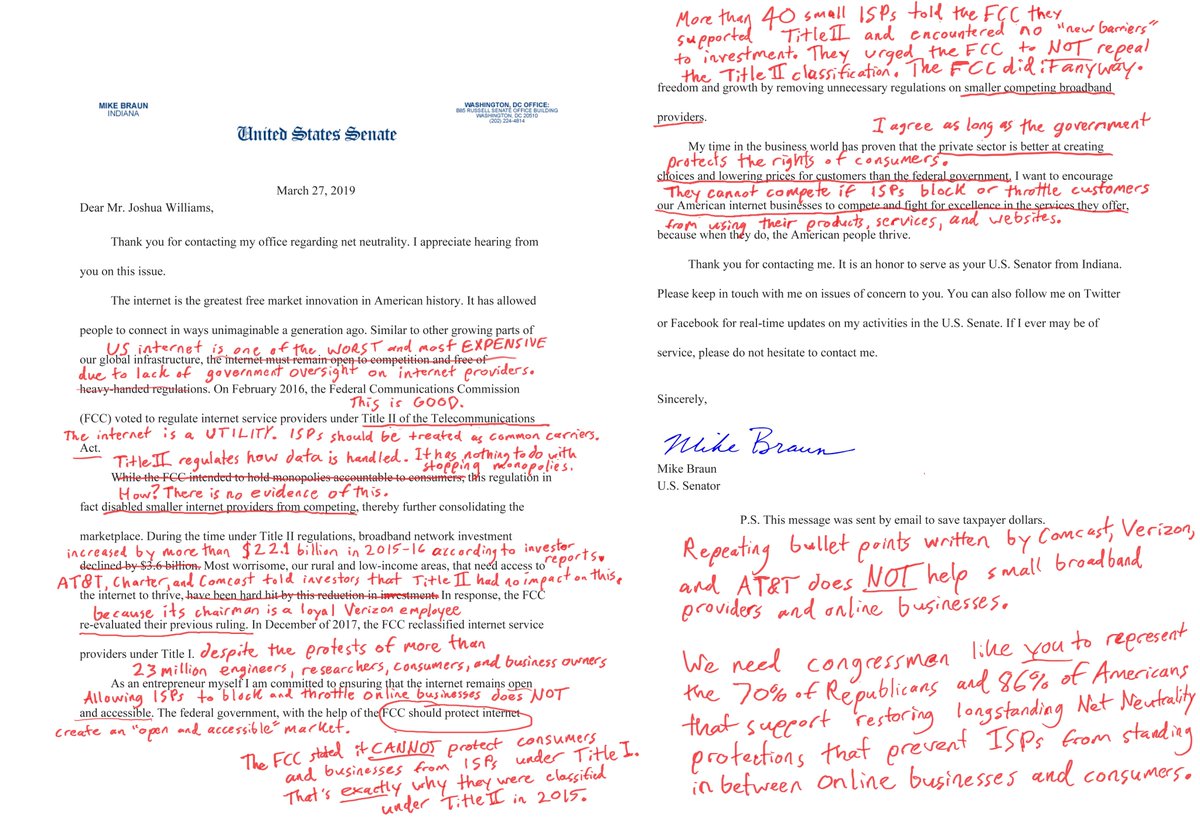 MIKE BRAUN
INDIANA
WASHINGTON, DC OFFICE:
B85 RUSSELL SENATE OFFICE BUILDING
WASHINGTON, DC 20510
(202) 224-4814
United States Senate
March 27, 2019
Dear Mr. Joshua Williams,
Thank you for contacting my office regarding net neutrality. I appreciate hearing from
you on this issue.
The internet is the greatest free market innovation in American history. It has allowed
people to connect in ways unimaginable a generation ago. Similar to other growing parts of
US internet is one of the WORST and most EXPENSIVE
our global infrastructure, the internet must remain open to competition and free of
due to lack of government oversight on internet providers.
heavy-handed regulations. On February 2016, the Federal Communications Commission
This is GOOD.
(FCC) voted to regulate internet service providers under Title II of the Telecommunications
The internet is a UTILITY. ISPs should be treated as common carriers.
Act.
Title II regulates how data is handled. It has nothing to do with
stopping monopolies.
While the FCC intended to hold monopolies accountable to consumers, this regulation in
How? There is no evidence of this.
fact disabled smaller internet providers from competing, thereby further consolidating the
marketplace. During the time under Title II regulations, broadband network investment
increased by more than $22.1 billion in 2015-16 according to investor
reports.
declined by $3.6 billion. Most worrisome, our rural and low-income areas, that need access to
AT&T, Charter, and Comcast told investors that Title II had no impact on this.
the internet to thrive, have been hard hit by this reduction in investment. In response, the FCC
because its chairman is a loyal Verizon employee
re-evaluated their previous ruling. In December of 2017, the FCC reclassified internet service
providers under Title I. despite the protests of more than
23 million engineers, researchers, consumers, and business owners
As an entrepreneur myself I am committed to ensuring that the internet remains open
Allowing ISPs to block and throttle online businesses does NOT
and accessible. The federal government, with the help of the FCC should protect internet
create an "open and accessible" market.
The FCC stated it CANNOT protect consumers
and businesses from ISPs under Title I.
That's exactly why they were classified
under Title II in 2015.
More than 40 small ISPs told the FCC they
supported Title II and encountered no "new barriers"
to investment. They urged the FCC to NOT repeal
the Title II classification. The FCC did it anyway.
freedom and growth by removing unnecessary regulations on smaller competing broadband
providers.
I agree as long as the government
My time in the business world has proven that the private sector is better at creating
protects the rights of consumers.
choices and lowering prices for customers than the federal government. I want to encourage
They cannot compete if ISPs block or throttle customers
our American internet businesses to compete and fight for excellence in the services they offer,
from using their products, services, and websites.
because when they do, the American people thrive.
Thank you for contacting me. It is an honor to serve as your U.S. Senator from Indiana.
Please keep in touch with me on issues of concern to you. You can also follow me on Twitter
or Facebook for real-time updates on my activities in the U.S. Senate. If I ever may be of
service, please do not hesitate to contact me.
Sincerely,
Mike Braun
Mike Braun
U.S. Senator
P.S. This message was sent by email to save taxpayer dollars.
Repeating bullet points written by Comcast, Verizon,
and AT&T does NOT help small broadband
providers and online businesses.
We need congressman like you to represent
the 70% of Republicans and 86% of Americans
that support restoring longstanding Net Neutrality
protections that prevent ISPs from standing
in between online businesses and consumers.